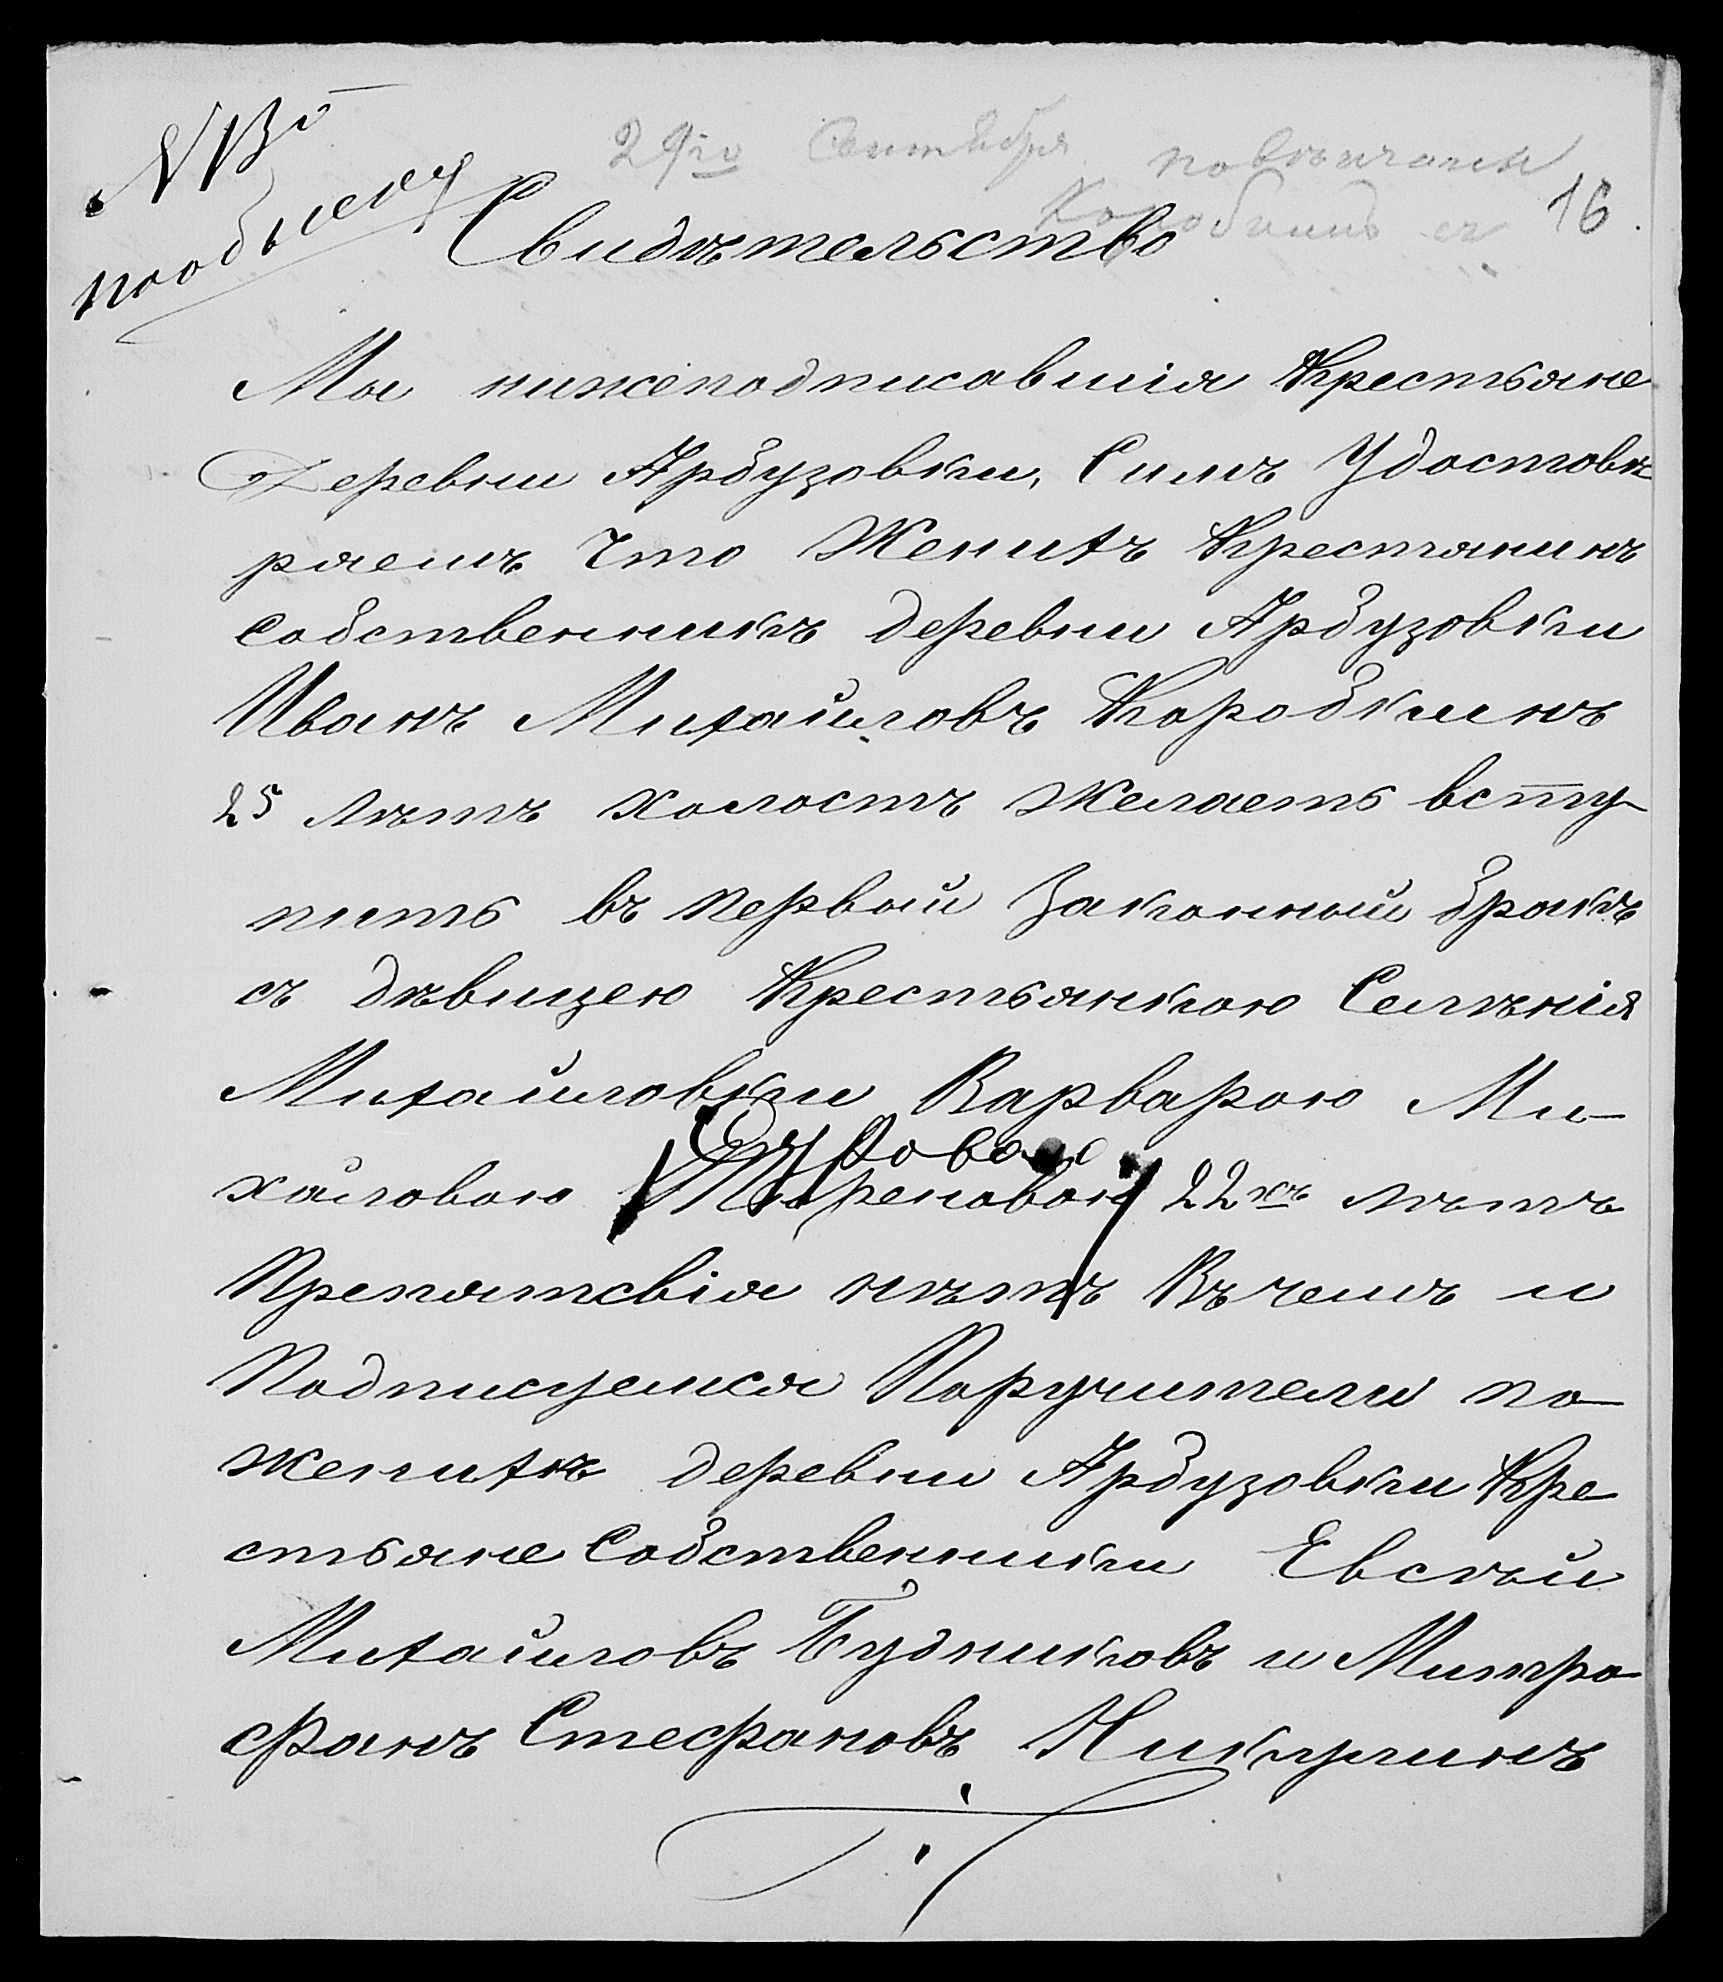 № 13й
по обыску
29го Сентября повѣнчаны
Коробкинъ съ
16
Свидѣтельство
Мы нижеподписавшія Крестьяне
Деревни Арбузовки, Симъ Удостовѣ
ряемъ Что Женихъ Крестянинъ
Собственникъ деревни Арбузовки
Иванъ Михайловъ Коробкинъ
25 лѣтъ холостъ желаетъ всту
пить въ первый Законный бракъ
съ дѣвицею Крестьянкою Селѣнія
Михайловки Варварою Ми-
хайловою 22хъ лѣтъ
Препятсвія нѣтъ Въ чемъ и
Подписуемся Поручители по
женихѣ деревни Арбузовки Кре
стьяне Собственники Евсѣй
Михайловъ Будниковъ и Митро
фанъ Стефановъ Никулинъ